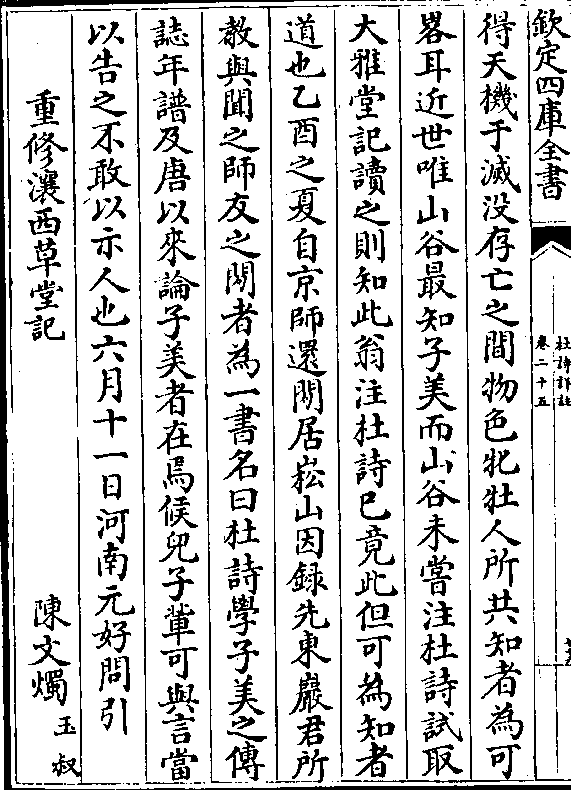 欽定四庫全書
杜詩詳註
卷二十五
得天機于滅没存亡之間物色牝牡人所共知者為可
畧耳近世唯山谷最知子美而山谷未嘗注杜詩試取
大雅堂記讀之則知此翁注杜詩已竟此但可為知者
道也乙酉之夏自京師還閒居崧山因録先東巖君所
教與聞之師友之閒者為一書名曰杜詩學子美之傳
誌年譜及唐以來論子美者在焉候兒子輩可與言當
以告之不敢以示人也六月十一日河南元好問引
重修瀼西草堂記 陳文燭玉叔